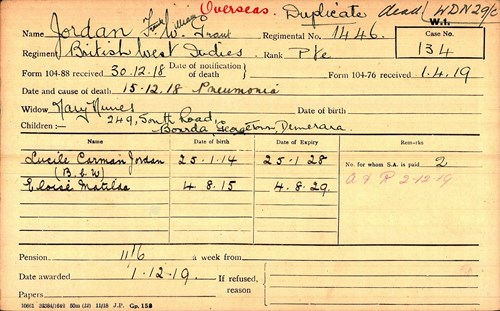 Overseas. Duplicate dead WDN29/6
W.1.
Name Jordan Frank William W. Grant Regimental No. 1446.
Case No.
134
Regiment British West Indies Rank Pte
Form 104-88 received 30.12.18 Date of notification of death Form 104-76 received 1.4.19
Date and cause of death 15-12.18 Pneumonia
Widow Mary Nunes
249, South Road,
Children:— Bourda Georgetown Demerara.
Name Date of birth Date of Expiry Remarks
Lucile Carman Jordan 25.1.14 25.1.28 No. for whom S.A. is paid 2
(B.L.W)
Eloise Matilda 4.8.15 4.8.29. A & R 2-12-19
Pension 11/6 a week from
Date awarded 1.12.19. If refused, reason
Papers
50m (22) 11/18 J.P. Gp. 158